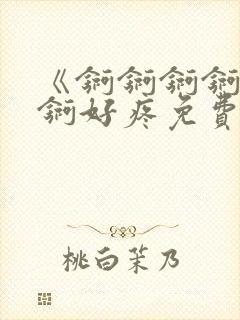 《锕锕锕锕
锕好疼免費
桃白茉乃